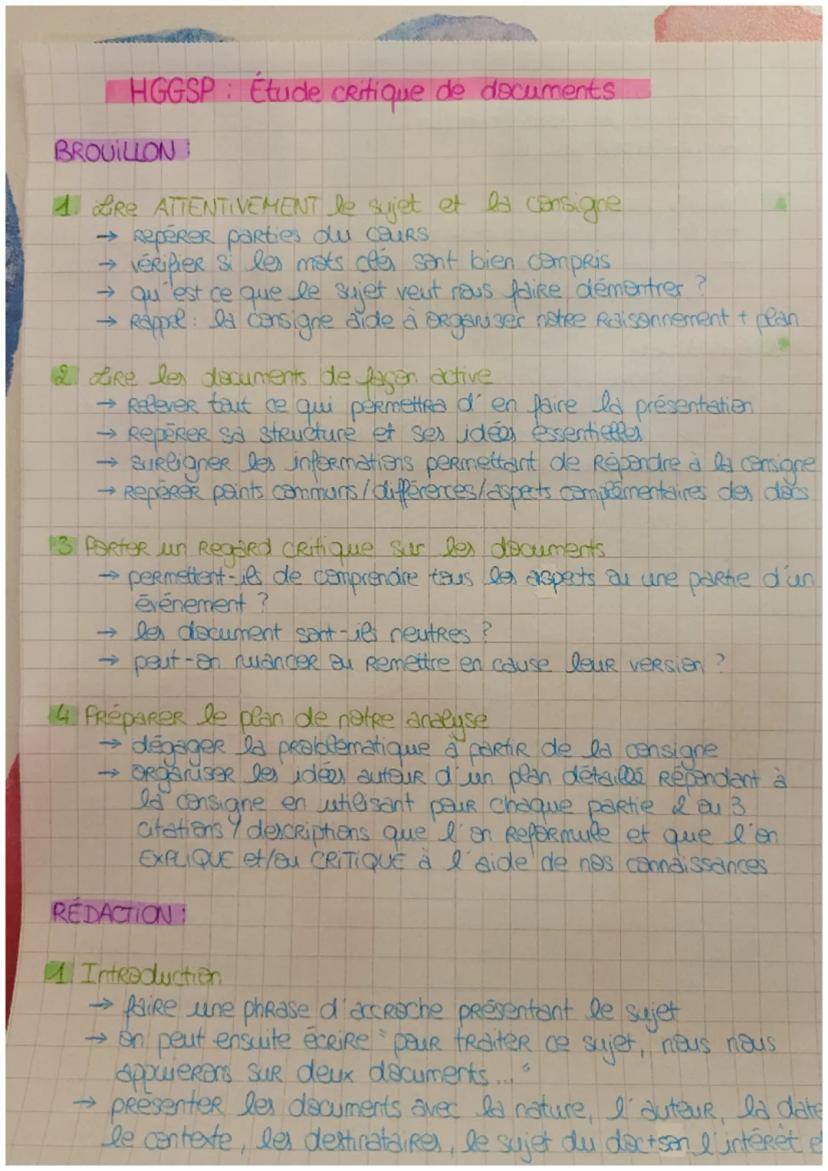 HGGSP : Étude critique de documents
BROUILLON :
1. Lire ATTENTIVEMENT le sujet et la consigne
→ repérer parties du cours
→ vérifier si les mots clés sont bien compris
→ qu'est ce que le sujet veut nous faire démontrer ?
→ Rappel : la consigne aide à organiser notre raisonnement + plan
2. Lire les documents de façon active
→ Relever tout ce qui permettra d'en faire la présentation
→ Repérer sa structure et ses idées essentielles
→ surligner les informations permettant de répondre à la consigne
→ repérer points communs/différences/aspets complémentaires des docs
3 Porter un regard critique sur les documents
→ permettent-ils de comprendre tous les aspects ou une partie d'un
événement ?
→ les document sont-ils neutres ?
→ peut-on nuancer ou remettre en cause leur version ?
4 Préparer le plan de notre analyse
→ dégager la problématique à partir de la consigne
→ organiser les idées autour d'un plan détaillé répondant à
la consigne en utilisant pour chaque partie 2 ou 3
citations / descriptions que l'on reformule et que l'on
EXPLIQUE et/ou CRITIQUE à l'aide de nos connaissances
RÉDACTION :
1 Introduction
→ faire une phrase d'accroche présentant le sujet
→ on peut ensuite écrire "pour traiter ce sujet, nous nous
appuierons sur deux documents..."
→ présenter les documents avec la nature, l'auteur, la date
le contexte, les destinataires, le sujet du doc+son l'intérêt e